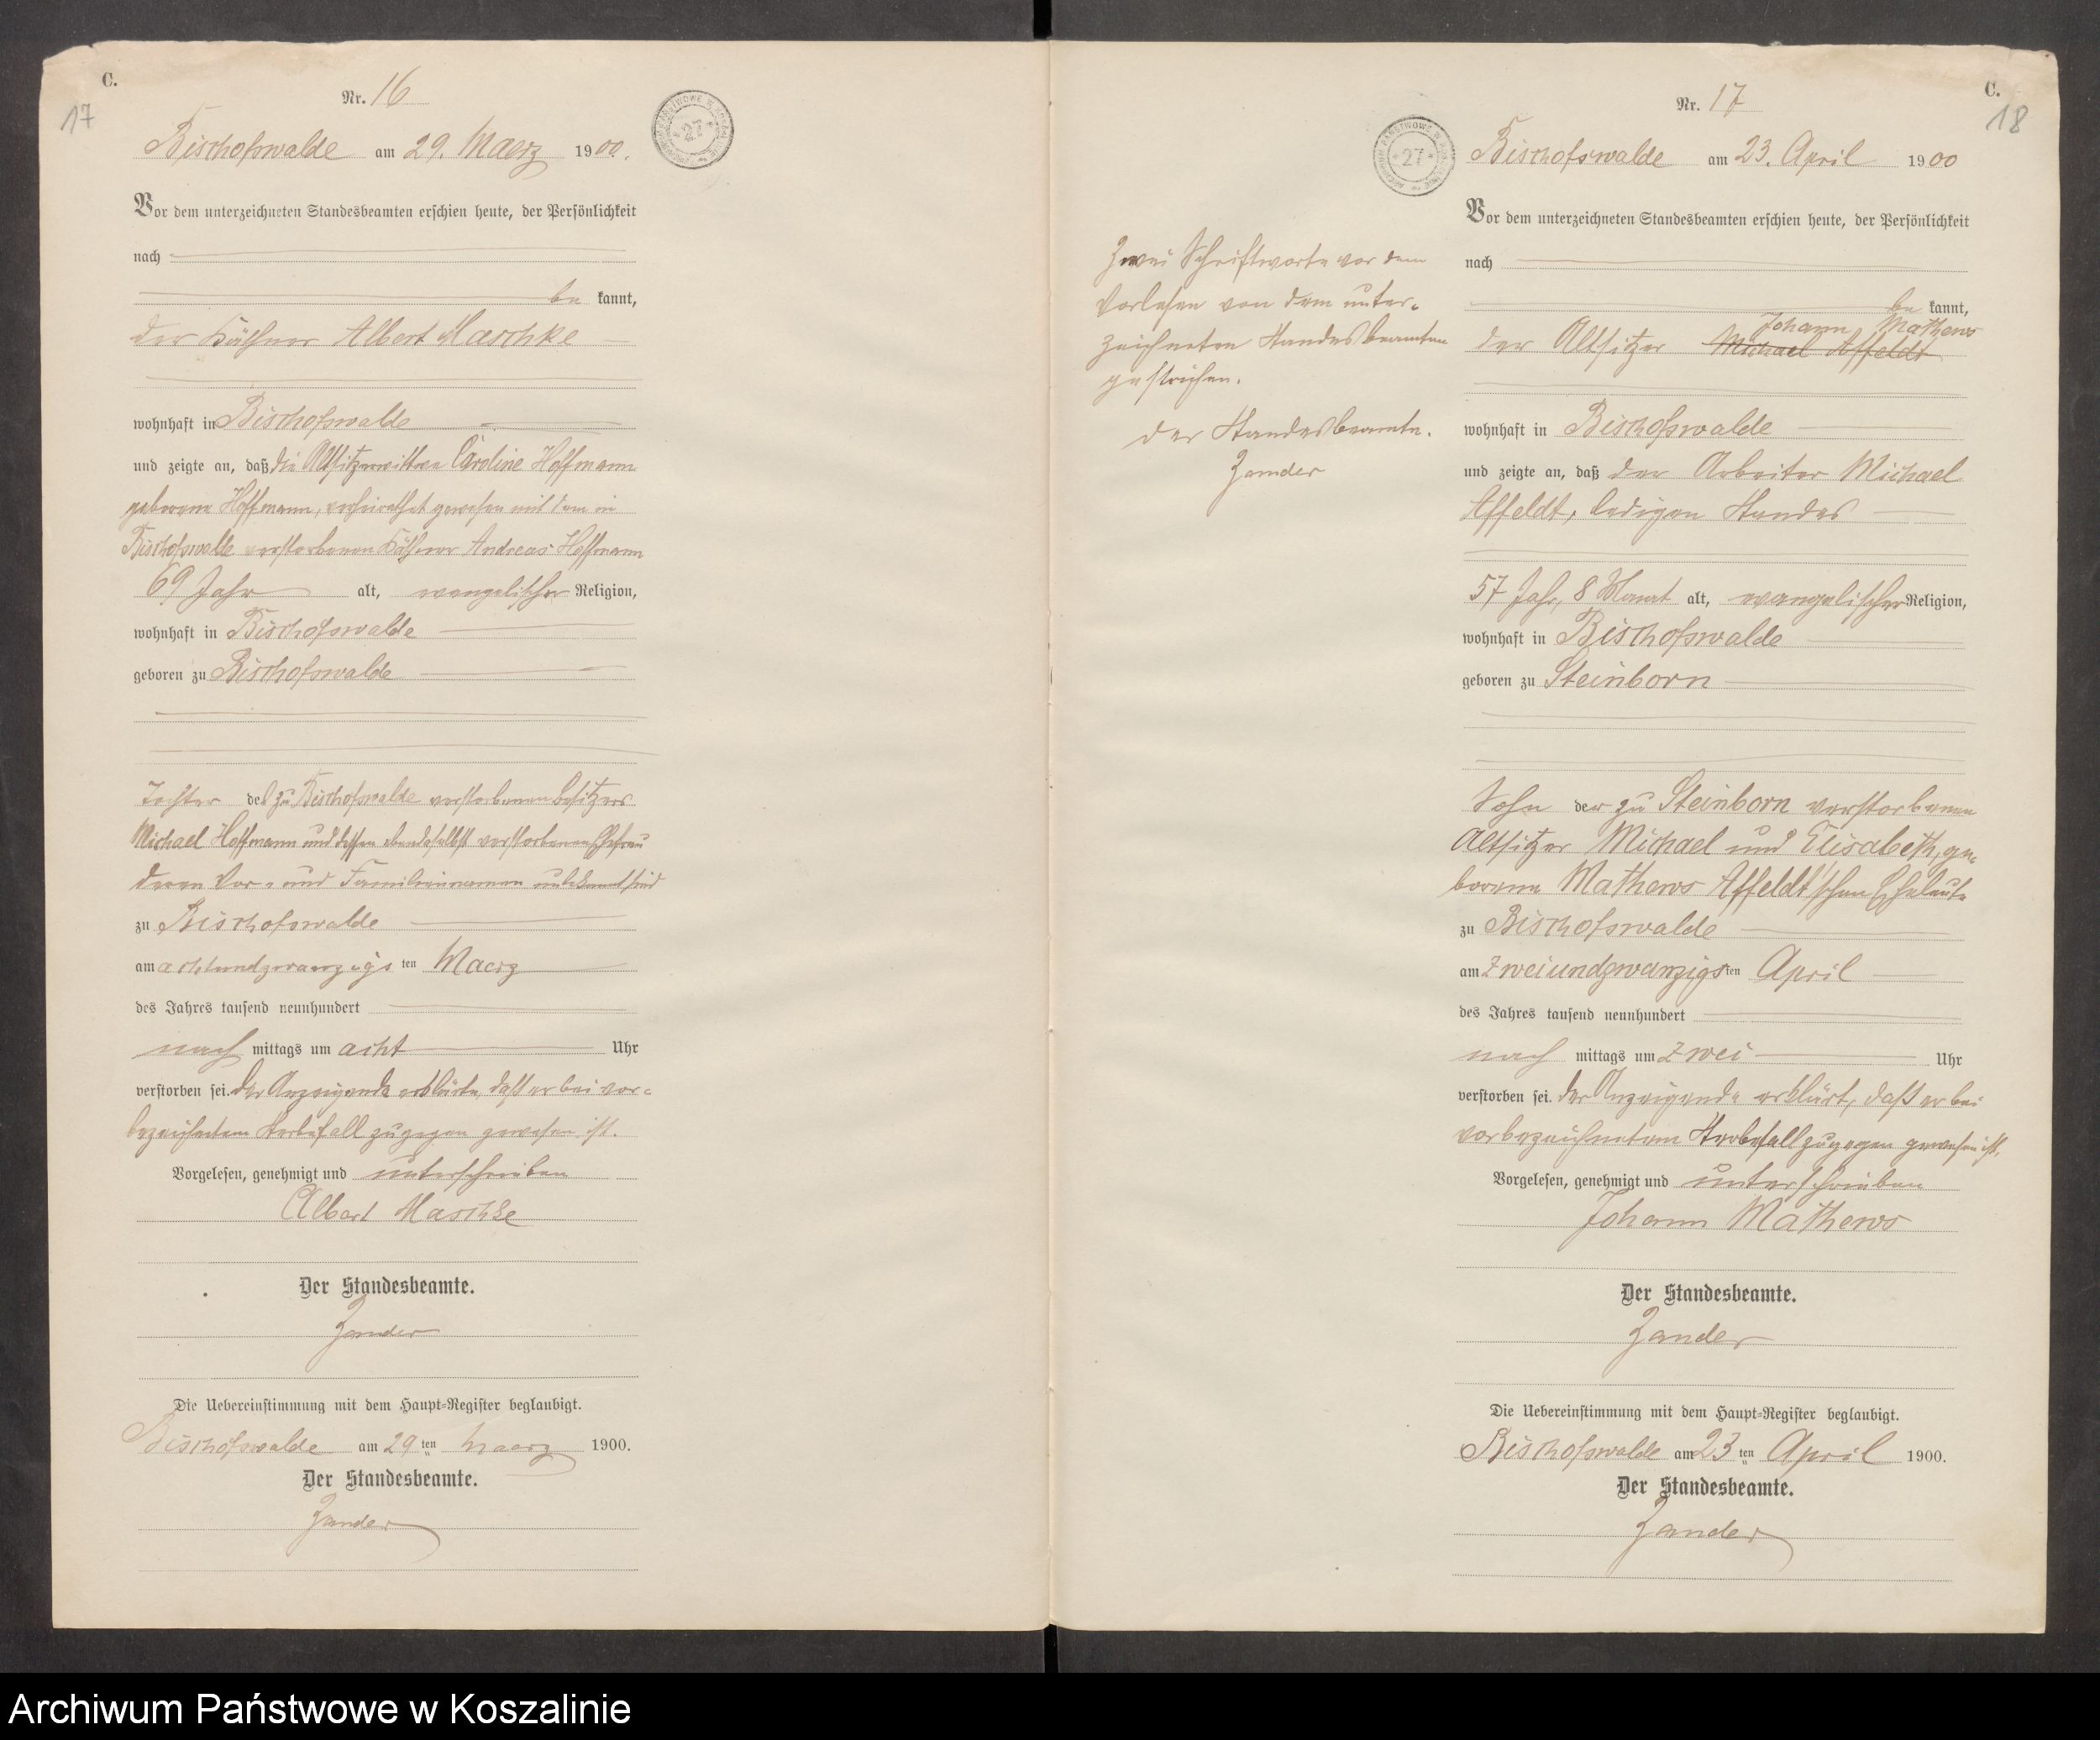 C.
17
Nr. 16
Bischofswalde am 29. Maerz 1900.
Vor dem unterzeichneten Standesbeamten erschien heute, der Persönlichkeit
nach
be kannt,
der Käthner Albert Maschke
wohnhaft in Bischofswalde
und zeigte an, daß die Altsitzerwittwe Caroline Hoffmann
geborene Hoffmann, verheirathet gewesen mit dem in
Bischofswalde verstorbenen Käthner Andreas Hoffmann
69 Jahr alt, evangelischer Religion,
wohnhaft in Bischofswalde
geboren zu Bischofswalde
Tochter des zu Bischofswalde verstorbenen Besitzers
Michael Hoffmann und dessen ebendaselbst verstorbenen Ehefrau
deren Vor- und Familiennamen unbekannt sind
zu Bischofswalde
am achtundzwanzigsten Maerz
des Jahres tausend neunhundert
nach mittags um acht Uhr
verstorben sei. Der Anzeigende erklärte, daß er bei vor-
bezeichnetem Sterbefall zugegen gewesen ist.
Vorgelesen, genehmigt und unterschrieben
Albert Maschke
Der Standesbeamte.
Zander
Die Uebereinstimmung mit dem Haupt-Register beglaubigt.
Bischofswalde am 29ten Maerz 1900.
Der Standesbeamte.
Zander
27
C.
18
Nr. 17
Bischofswalde am 23. April 1900
27
Zwei Schriftworte vor dem
Vorlesen von dem unter-
zeichneten Standesbeamten
gestrichen.
Der Standesbeamte.
Zander
Vor dem unterzeichneten Standesbeamten erschien heute, der Persönlichkeit
nach
be kannt,
Johann Mathews
der Altsitzer Michael Affeldt
wohnhaft in Bischofswalde
und zeigte an, daß der Arbeiter Michael
Affeldt, ledigen Standes
57 Jahr, 8 Monat alt, evangelischer Religion,
wohnhaft in Bischofswalde
geboren zu Steinborn
Sohn der zu Steinborn verstorbenen
Altsitzer Michael und Elisabeth, ge-
borene Mathews Affeldt'schen Eheleute
zu Bischofswalde
am zweiundzwanzigsten April
des Jahres tausend neunhundert
nach mittags um zwei Uhr
verstorben sei. Der Anzeigende erklärt, daß er bei
vorbezeichnetem Sterbefall zugegen gewesen ist.
Vorgelesen, genehmigt und unterschrieben
Johann Mathews
Der Standesbeamte.
Zander
Die Uebereinstimmung mit dem Haupt-Register beglaubigt.
Bischofswalde am 23ten April 1900.
Der Standesbeamte.
Zander
Archiwum Państwowe w Koszalinie